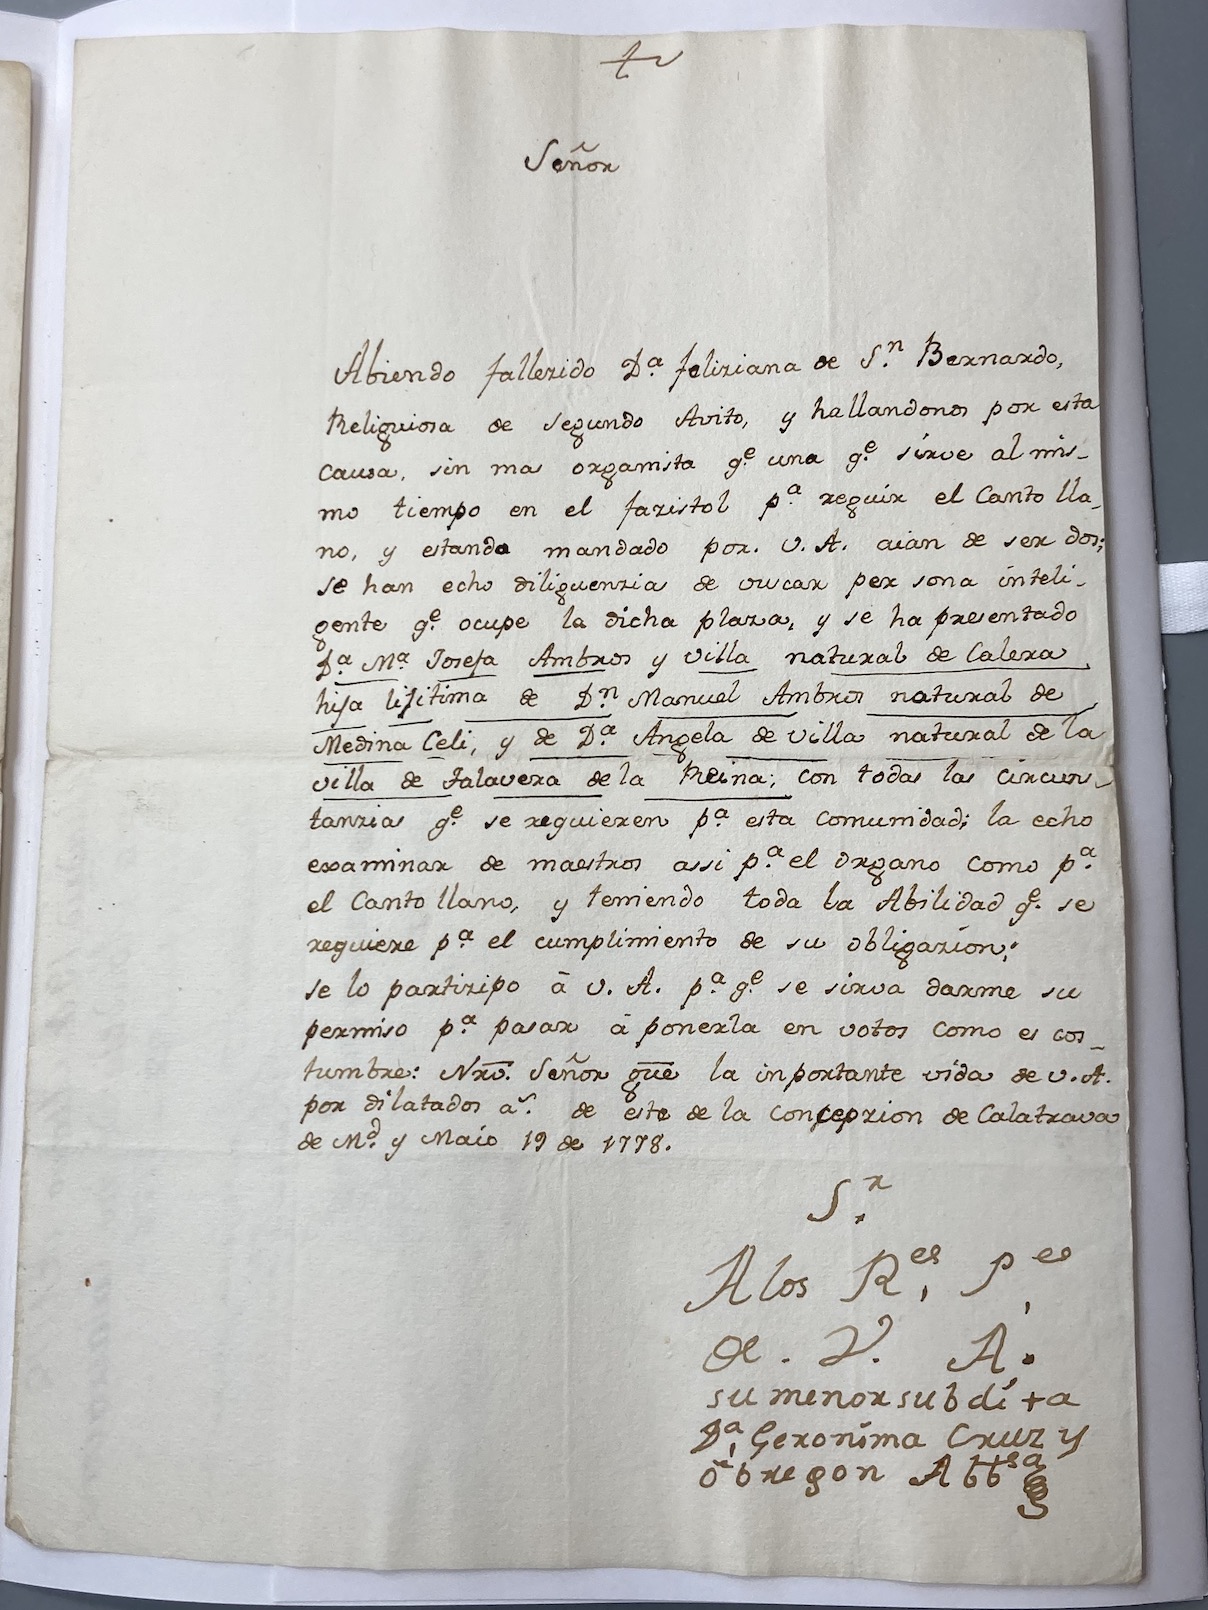 Señor
Abiendo fallezido D.ª feliziana de S.n Bernardo,
Religuiosa de segundo Avito, y hallandonos por esta
causa, sin mas organista q.e una q.e sirve al mis-
mo tiempo en el faristol p.ª reguir el Canto lla-
no, y estando mandado por. V. A. aian de ser dos;
se han echo diliguenzia de vuscar persona inteli-
gente q.e ocupe la dicha plaza, y se ha presentado
D.ª M.ª Josefa Ambros y villa natural de Calera
hija lijitima de D.n Manuel Ambros natural de
Medina Celi, y de D.ª Angela de villa natural de la
villa de Talavera de la Reina; con todas las circuns-
tanzias q.e se requieren p.ª esta comunidad; la echo
examinar de maestros assi p.ª el organo como p.ª
el Canto llano, y teniendo toda la Abilidad q.e se
requiere p.ª el cumplimiento de su obligazion;
se lo partizipo â V. A. p.ª q.e se sirva darme su
permiso p.ª pasar â ponerla en votos como es cos-
tumbre: Nrô. Señor gûe la inportante vida de V. A.
por dilatados a.s de este de la Concepzion de Calatrava
de M.d y Maio 19 de 1778.
S.r
A los R.es P.es
de. V. A.
su menor subdita
D.ª Geronima Cruz y
Obregon Abb.sa